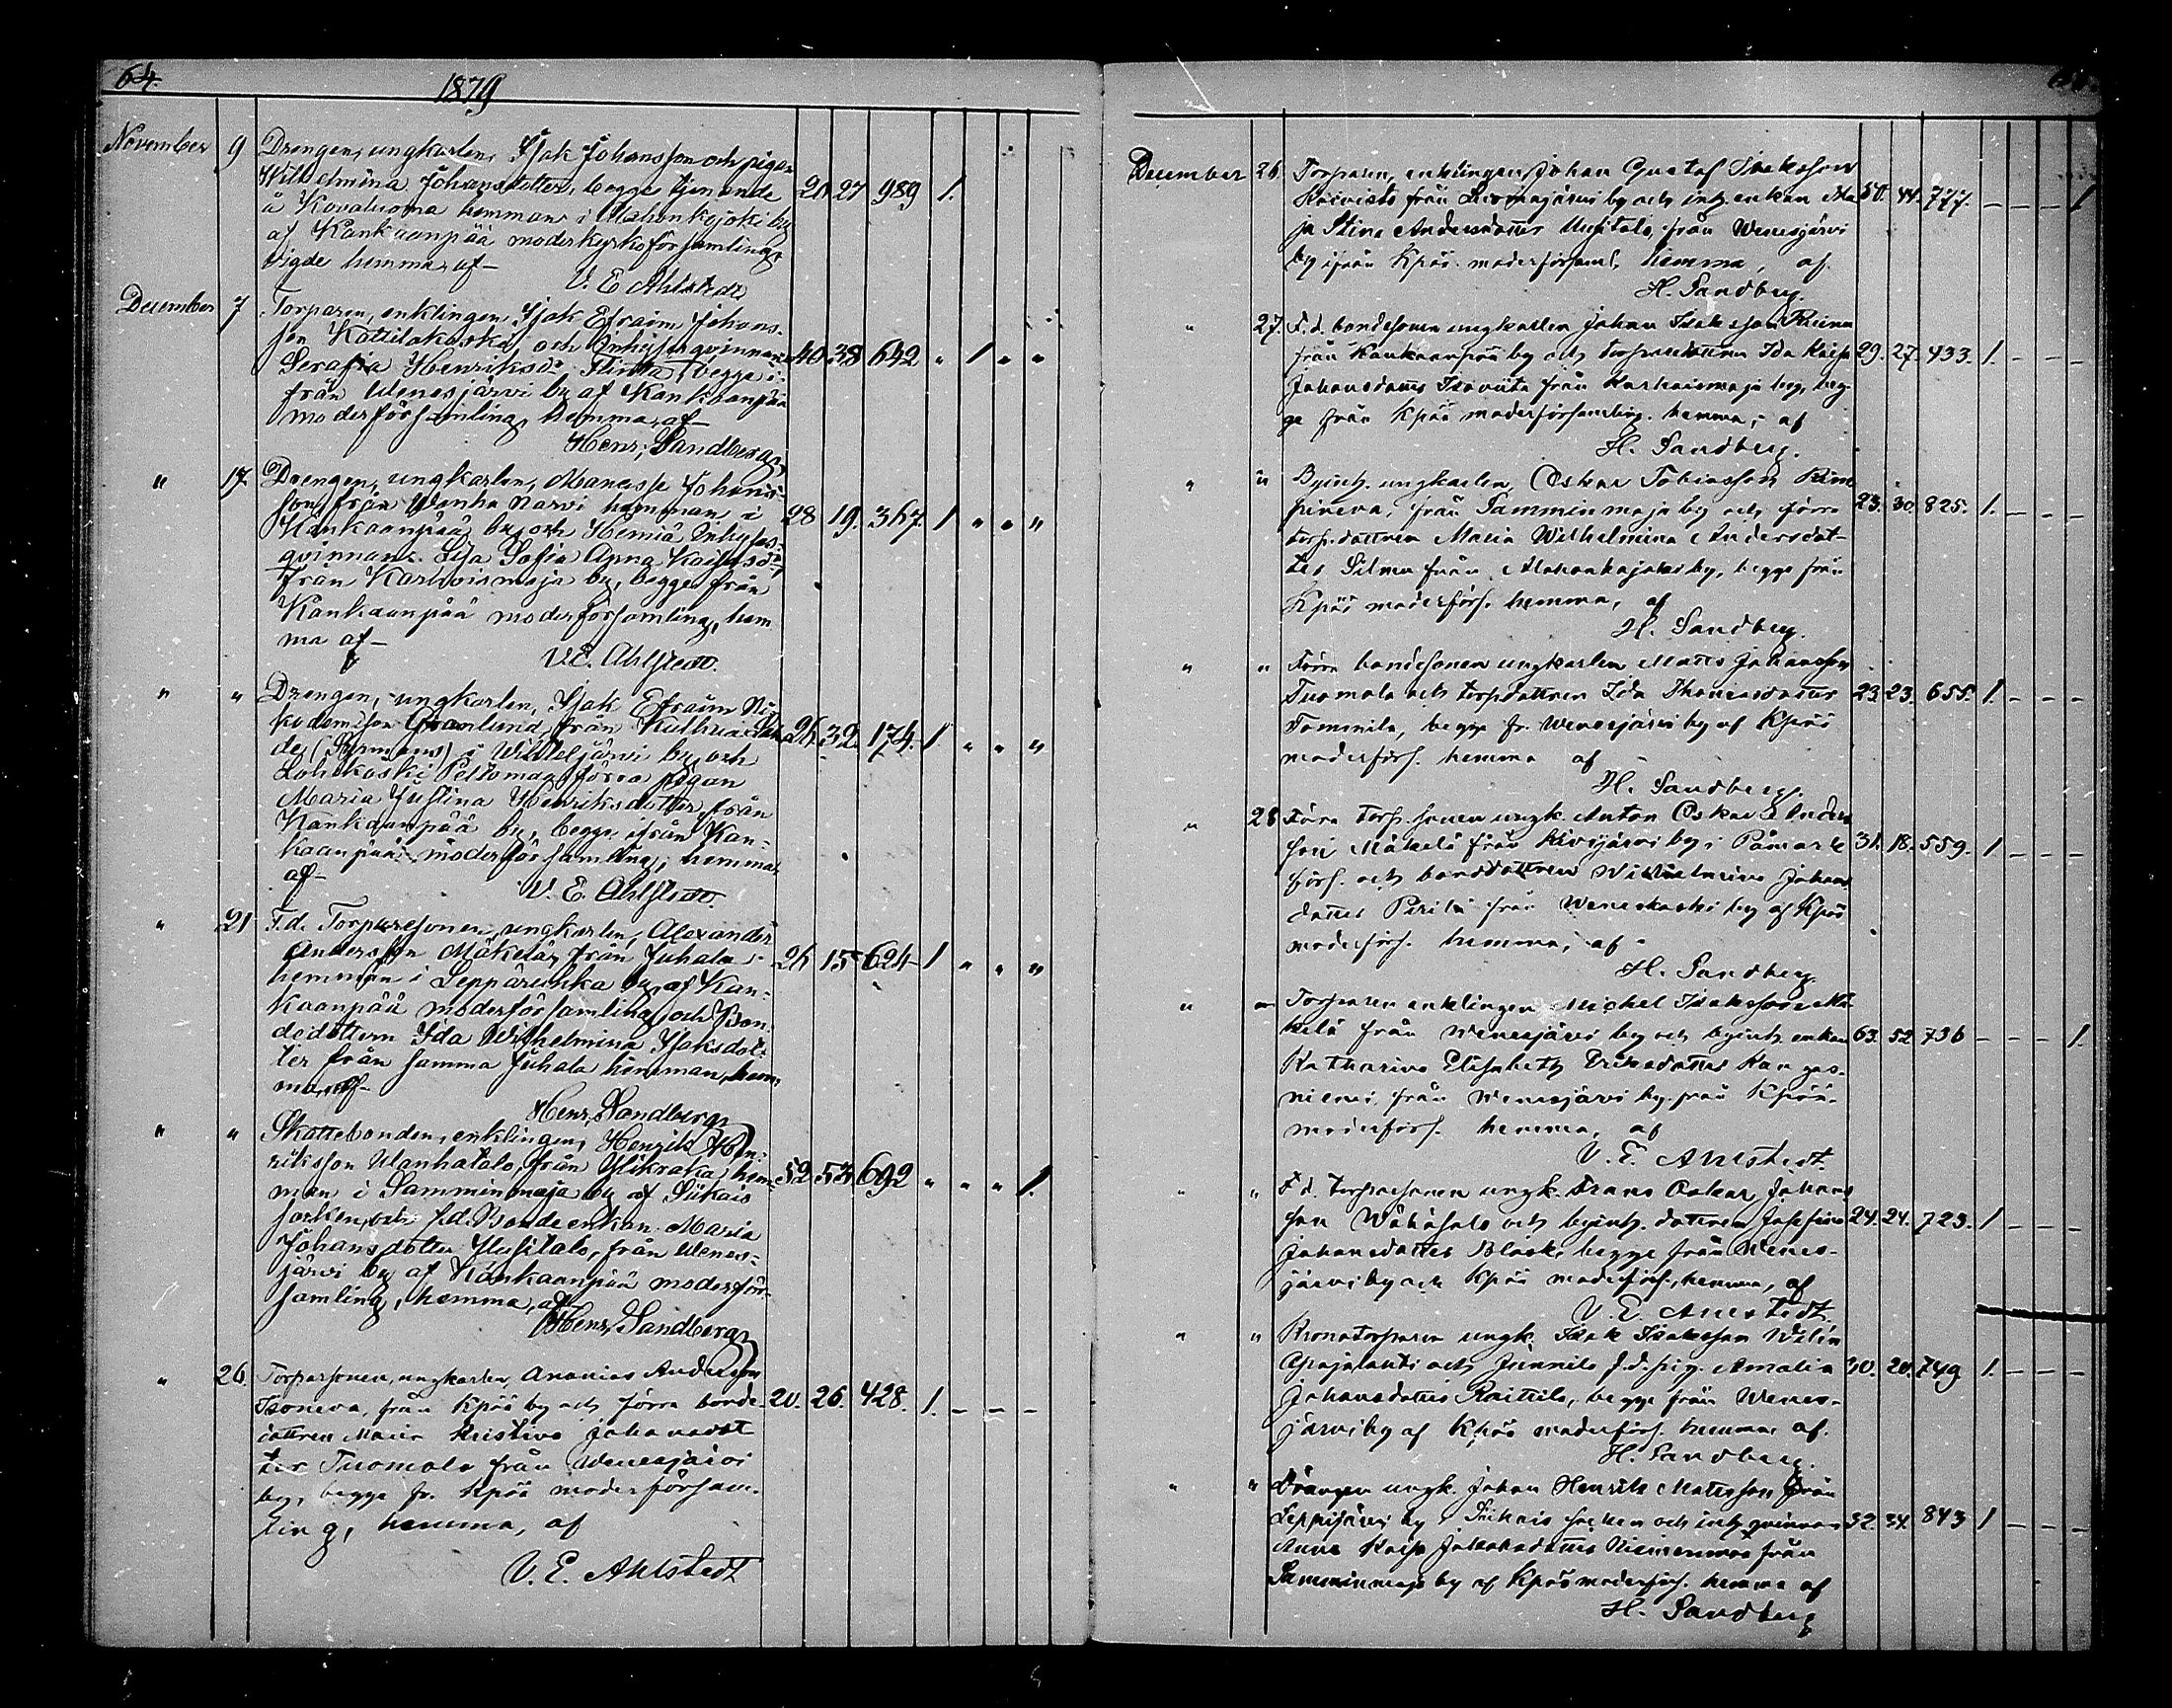 64.
1879
November 9 Drengen, ungkarlen, Isak Johansson och pigan
Wilhelmina Johansdotter, begge tjenande 20 27 989 1.
å Kovaluoma hemman i Alahonkajoki by
af Kankaanpää moderkyrkoförsamling,
vigde hemma, af
V. E. Ahlstedt
December 7 Torparen, enklingen, Isak Efraim Johans-
son Kattilakoski och Inhysesqvinnan 40 38 642 " 1 " "
Serafia Henriksdr Flinta, begge i-
från Wenesjärvi by af Kankaanpää
moderförsamling, hemma, af
Henr. Sandberg
" 17. Drengen, ungkarlen, Manasse Johans-
son från Wanha Narvi hemman i 28 19. 367. 1 " " "
Kankaanpää by och Hemiä Inhyses
qvinnans Sofia Anna Kaisasdr
från Karhoismaja by, begge från
Kankaanpää moderförsamling, hem
ma af
V. E. Ahlstedt.
" " Drengen, ungkarlen, Isak Efraim Ni-
kodemsson Granlund, från 26. 32. 174. 1 " " "
de i by, och
Lohikoski Peltomaa förra pigan
Maria Justina Henriksdotter, från
Kankaanpää by, begge ifrån Kan-
kaanpää moderförsamling, hemma,
af
V. E. Ahlstedt.
" 21 F.d. Torparesonen, ungkarlen, Alexander
Andersson Mäkelä, från Juhala 26 15 624 1 " " "
hemman i Leppäruhka by, af Kan-
kaanpää moderförsamling och Bon-
dedottern Ida Wilhelmina Isaksdot-
ter från samma Juhala hemman, hem-
ma, af
Henr. Sandberg
" " Skattebonden, enklingen, Henrik Hen-
riksson Wanhatalo, från Ylikraka hem- 52 52 692 " " " 1.
man i Samminmaja by af Siikais
socken, och f.d. Bondeenkan Maria
Johansdotter Uusitalo, från Wenes-
järvi by af Kankaanpää moderför-
samling, hemma, af
Henr. Sandberg
" 26. Torparsonen, ungkarlen Ananias Andersson
Isoneva, från Kpää by och förra bonde- 20. 26. 428. 1. – – –
dottren Maria Kristina Johansdot
ter Tuomala från Wenesjärvi
by, begge fr. Kpää moderförsam-
ling, hemma, af
V. E. Ahlstedt
December 26. Torparen, enklingen Johan Gustaf Isaksson
Koivisto från by och inh. enkan Ma 50. 44. 777. – – – 1
ja Stina Andersdotter Uusitalo, från Wenesjärvi
by ifrån Kpää moderförsaml. hemma, af
H. Sandberg.
" 27. F.d. bondesonen ungkarlen Johan Isaksson
från Kankaanpää by och torparedottren Ida Kaisa 29. 27. 433. 1. – – –
Johansdotter Isoviita från Karhoismaja by, beg-
ge från Kpää moderförsamling. hemma, af
H. Sandberg.
" " Byinh. ungkarlen, Oskar Tobiasson Rim
pineva, från Samminmaja by och förra 23. 30. 825. 1. – – –
torp.dottren Maria Wilhelmina Andersdot-
ter Silmu från Alahonkajoki by, begge från
Kpää moderförs. hemma, af
H. Sandberg.
" " Förra bondesonen ungkarlen Matts Johansson
Tuomala och torpdottren Ida Thomasdotter 23. 23. 655. 1. – – –
Tommila, begge fr. Wenesjärvi by af Kpää
moderförs. hemma af
H. Sandberg.
" 28 Förra torp.sonen ungk. Anton Oskar Anders
son Mäkelä från by i Påmark 31. 18. 559. 1. – – –
förs. och bonddottren Wilhelmina Johans
dotter Perilä från Weneskoski by af Kpää
moderförs. hemma, af
H. Sandberg
" " Torparen enklingen Michel Isaksson Mä
kelä från Wenesjärvi by och byinh. enkan 63. 52 736 – – – 1.
Katharina Elisabeth Eriksdotter Kangas-
niemi, från Wenesjärvi by från Kpää
moderförs. hemma, af
V. E. Ahlstedt.
" " F.d. torparsonen ungk. Frans Oskar Johans
son Wähäsalo och byinh. dottren Josefina 24. 24. 723. 1 – – –
Johansdotter Blask, begge från Wenes-
järvi by och Kpää moderförs., hemma, af
V. E. Ahlstedt.
" " Kronotorparen ungk. Isak Isaksson Welin
och f.d. pig. Amalia 30. 20. 749 1. – – –
Johansdotter Raittila, begge från Wenes-
järvi by af Kpää moderförs. hemma af.
H. Sandberg.
" " Drängen ungk. Johan Henrik Matsson från
Leppijärvi by i Siikais socken och inh. qvinnan 32. 34. 843 1 – – –
Anna Kaisa Johansdotter Niemenmaa från
Samminmaja by af Kpää moderförs. hemma af
H. Sandberg